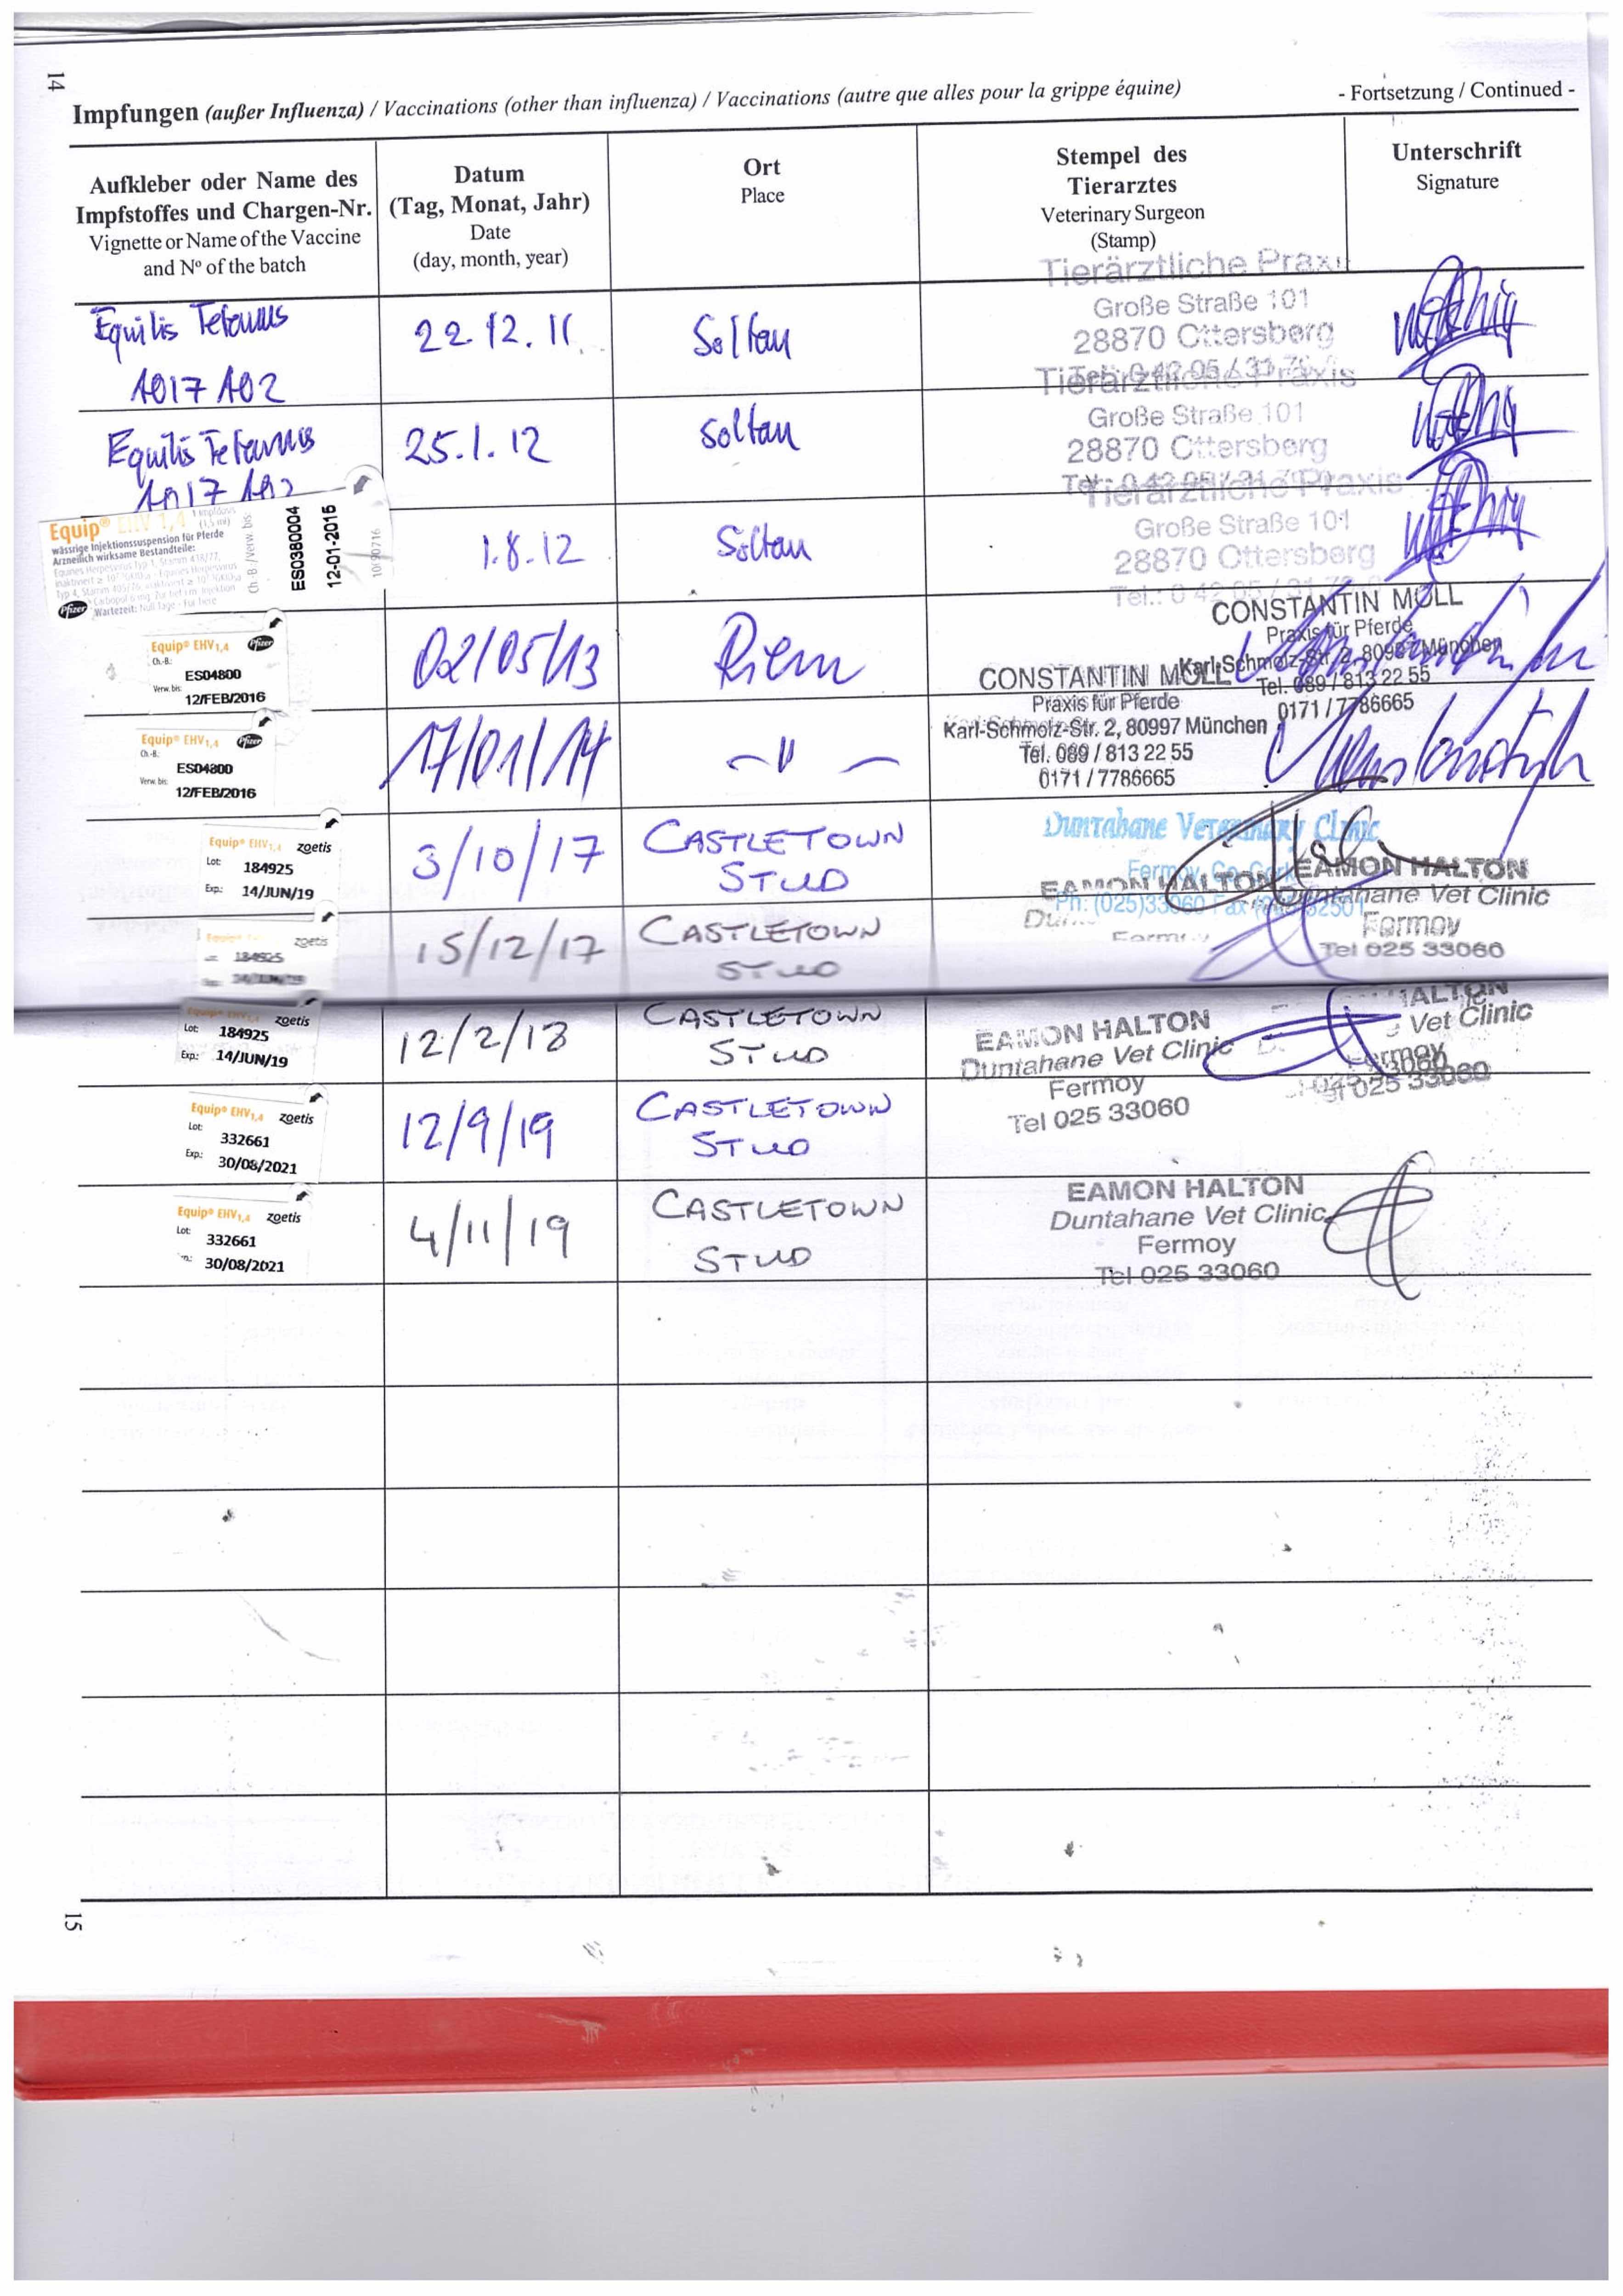 14
Impfungen (außer Influenza) / Vaccinations (other than influenza) / Vaccinations (autre que alles pour la grippe équine)
- Fortsetzung / Continued -
Aufkleber oder Name des
Impfstoffes und Chargen-Nr.
Vignette or Name of the Vaccine
and Nº of the batch
Datum
(Tag, Monat, Jahr)
Date
(day, month, year)
Ort
Place
Stempel des
Tierarztes
Veterinary Surgeon
(Stamp)
Unterschrift
Signature
Equilis Tetanus
A017 A02
22.12.11
Soltau
Tierärztliche Praxi
Große Straße 101
28870 Ottersberg
Equilis Tetanus
A017 A02
25.1.12
Soltau
Tierärztliche Praxis
Große Straße 101
28870 Ottersberg
Equip® EHV 1,4
1 Impfdosis
(1,5 ml)
wässrige Injektionssuspension für Pferde
Arzneilich wirksame Bestandteile:
Pfizer
Wartezeit: Null Tage - Für Tiere
Ch.-B./Verw. bis:
ES0380004
12-01-2015
10090716
1.8.12
Soltau
Tierärztliche Praxis
Große Straße 101
28870 Ottersberg
Equip® EHV1,4 Pfizer
Ch.-B.:
ES04800
Verw. bis:
12/FEB/2016
02/05/13
Riem
CONSTANTIN MOLL
Praxis für Pferde
Karl-Schmolz-Str. 2, 80997 München
Tel. 089 / 813 22 55
0171 / 7786665
Equip® EHV1,4 Pfizer
Ch.-B.:
ES04800
Verw. bis:
12/FEB/2016
17/01/14
— " —
CONSTANTIN MOLL
Praxis für Pferde
Karl-Schmolz-Str. 2, 80997 München
Tel. 089 / 813 22 55
0171 / 7786665
Equip® EHV1,4 zoetis
Lot: 184925
Exp.: 14/JUN/19
3/10/17
CASTLETOWN
STUD
Duntahane Veterinary Clinic
Fermoy, Co. Cork
Ph: (025)33060
EAMON HALTON
15/12/17
CASTLETOWN
STUD
zoetis
184925
EAMON HALTON
Duntahane Vet Clinic
Fermoy
Tel 025 33060
zoetis
Lot: 184925
Exp.: 14/JUN/19
12/2/18
CASTLETOWN
STUD
EAMON HALTON
Duntahane Vet Clinic
Fermoy
Tel 025 33060
HALTON
Vet Clinic
Fermoy
025 33060
Equip® EHV1,4 zoetis
Lot: 332661
Exp.: 30/08/2021
12/9/19
CASTLETOWN
STUD
Equip® EHV1,4 zoetis
Lot: 332661
30/08/2021
4/11/19
CASTLETOWN
STUD
EAMON HALTON
Duntahane Vet Clinic
Fermoy
Tel 025 33060
15